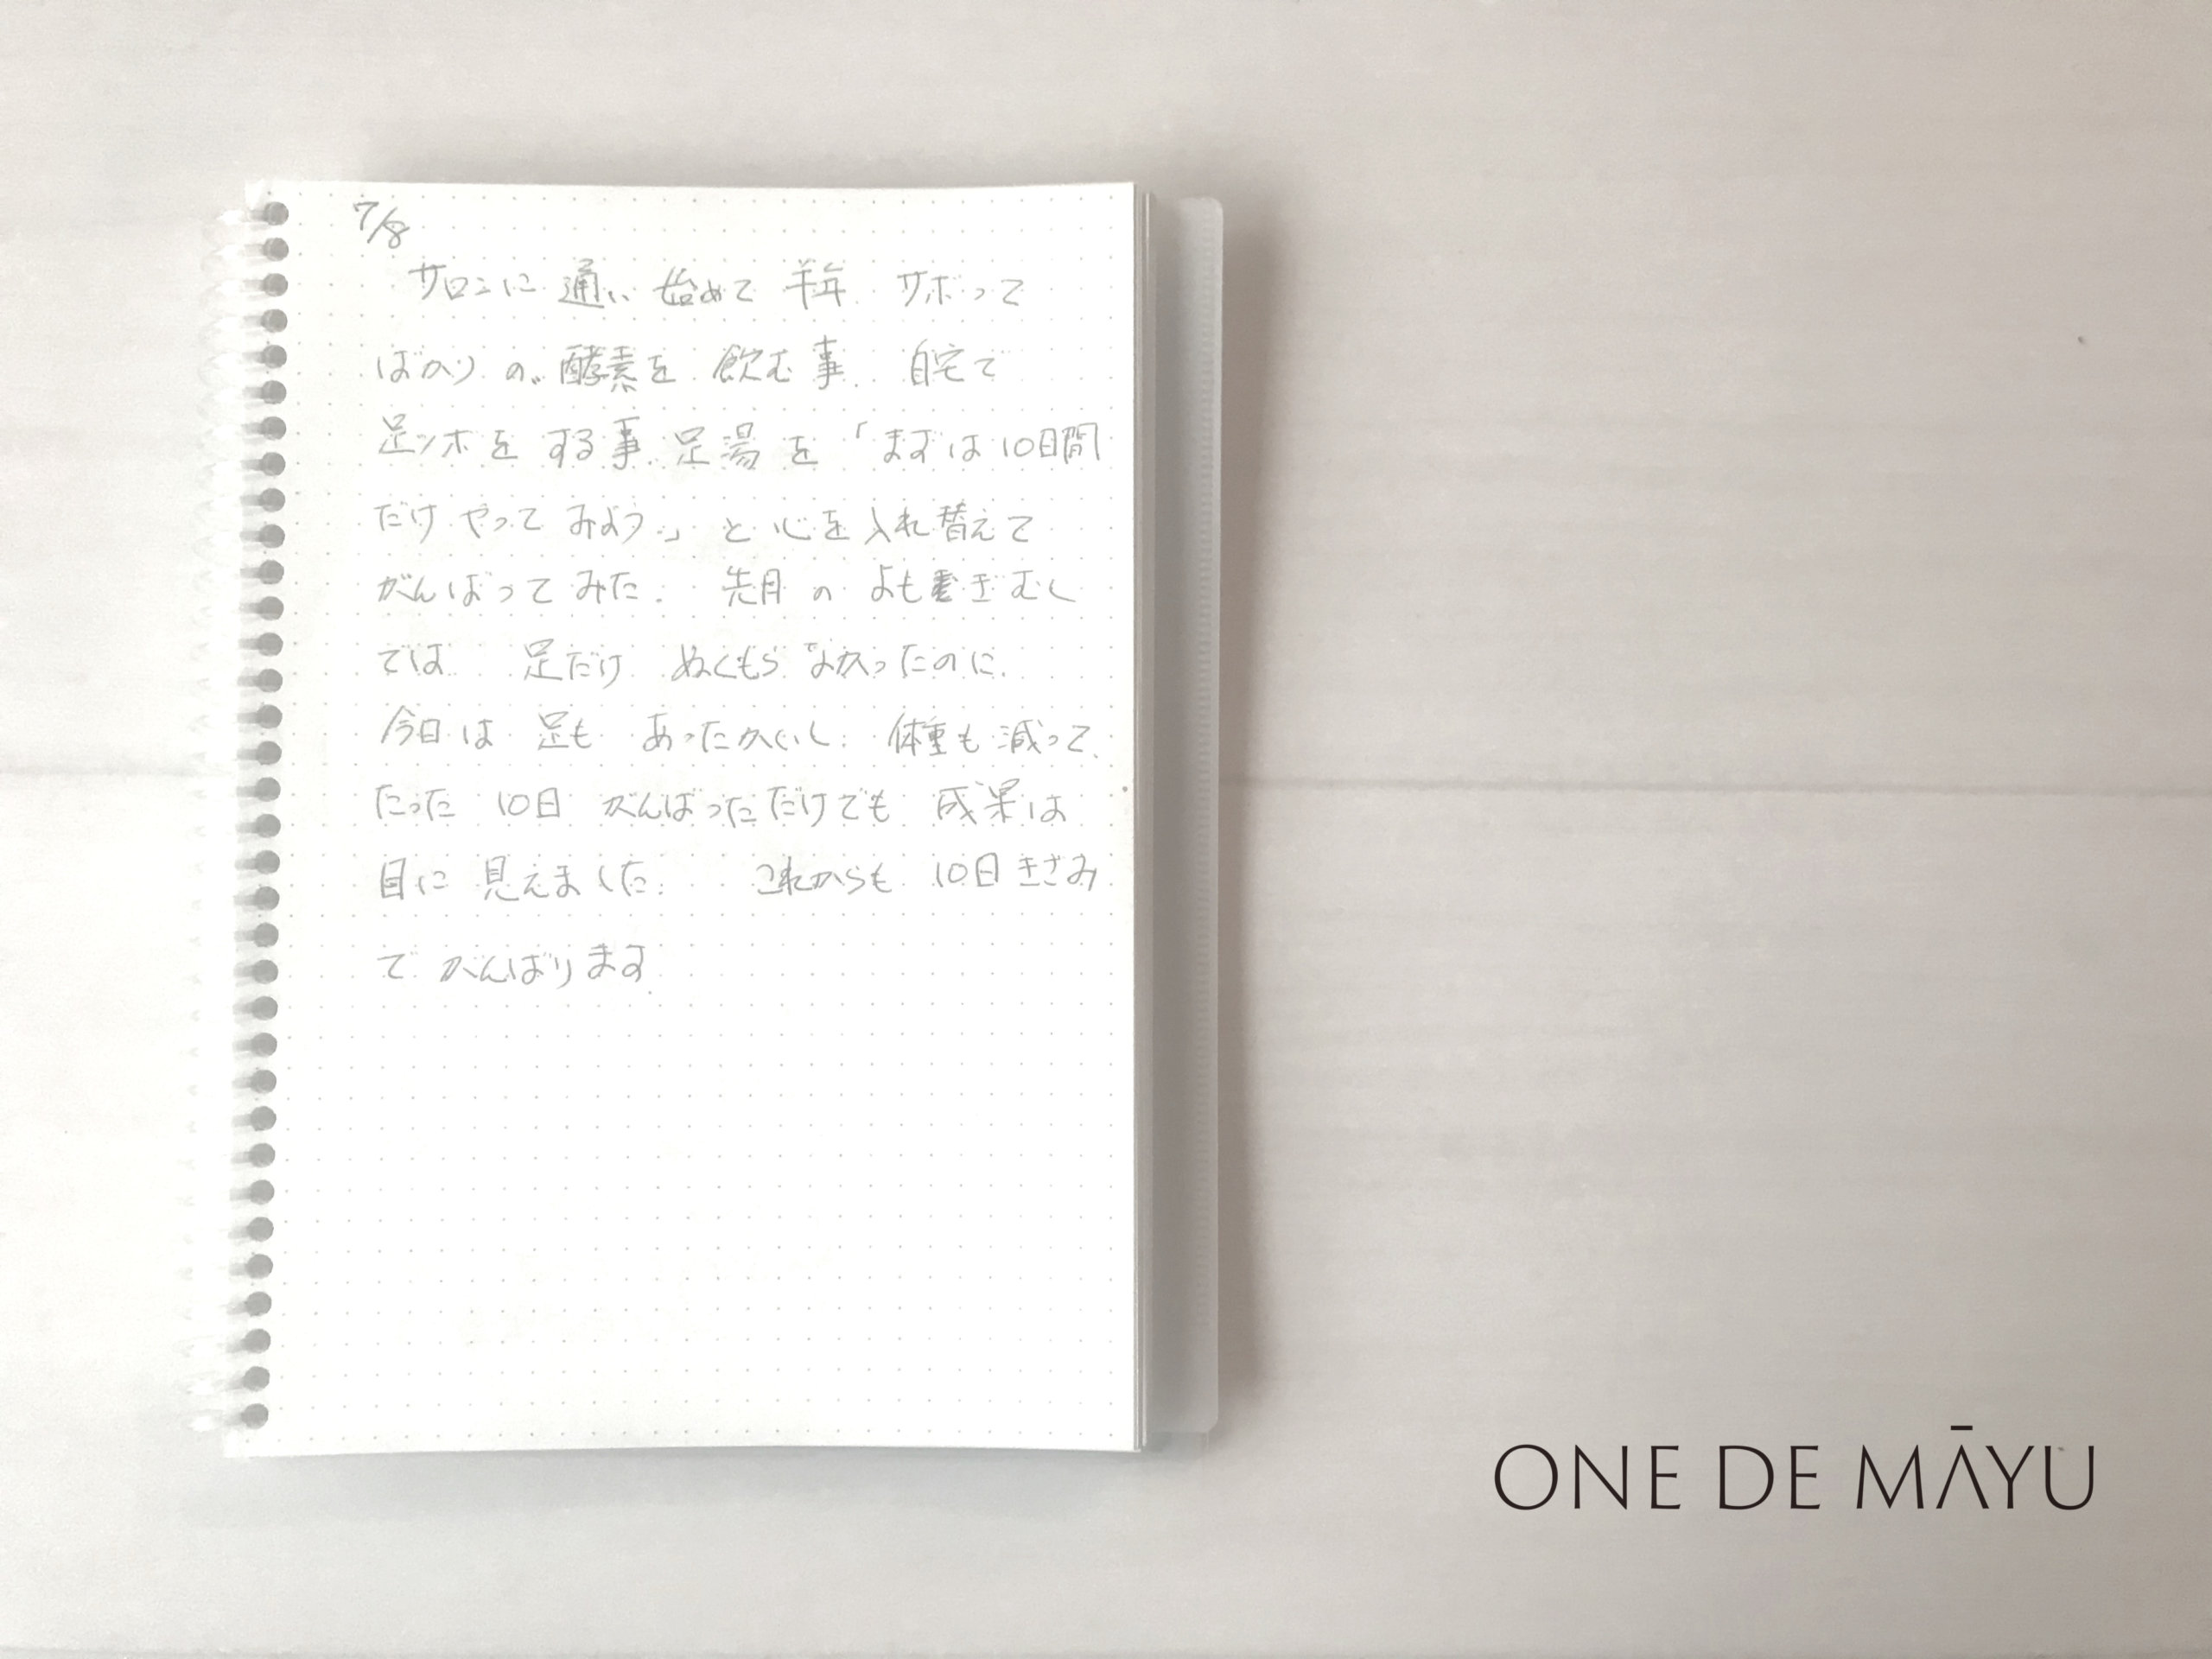 7/8
サロンに 通い 始めて 半年 サボって
ばかりの 酵素を 飲む事 自宅で
足ツボを する事 足湯を 「まずは 10日間
だけ やって みよう。」 と 心を 入れ替えて
がんばって みた. 先月 の よもぎむし
では 足だけ ぬくもらなかったのに.
今日は 足も あったかいし. 体重も 減って、
たった 10日 がんばっただけでも 成果は
目に 見えました. これからも 10日 きざみ
で がんばります.
ONE DE MĀYU